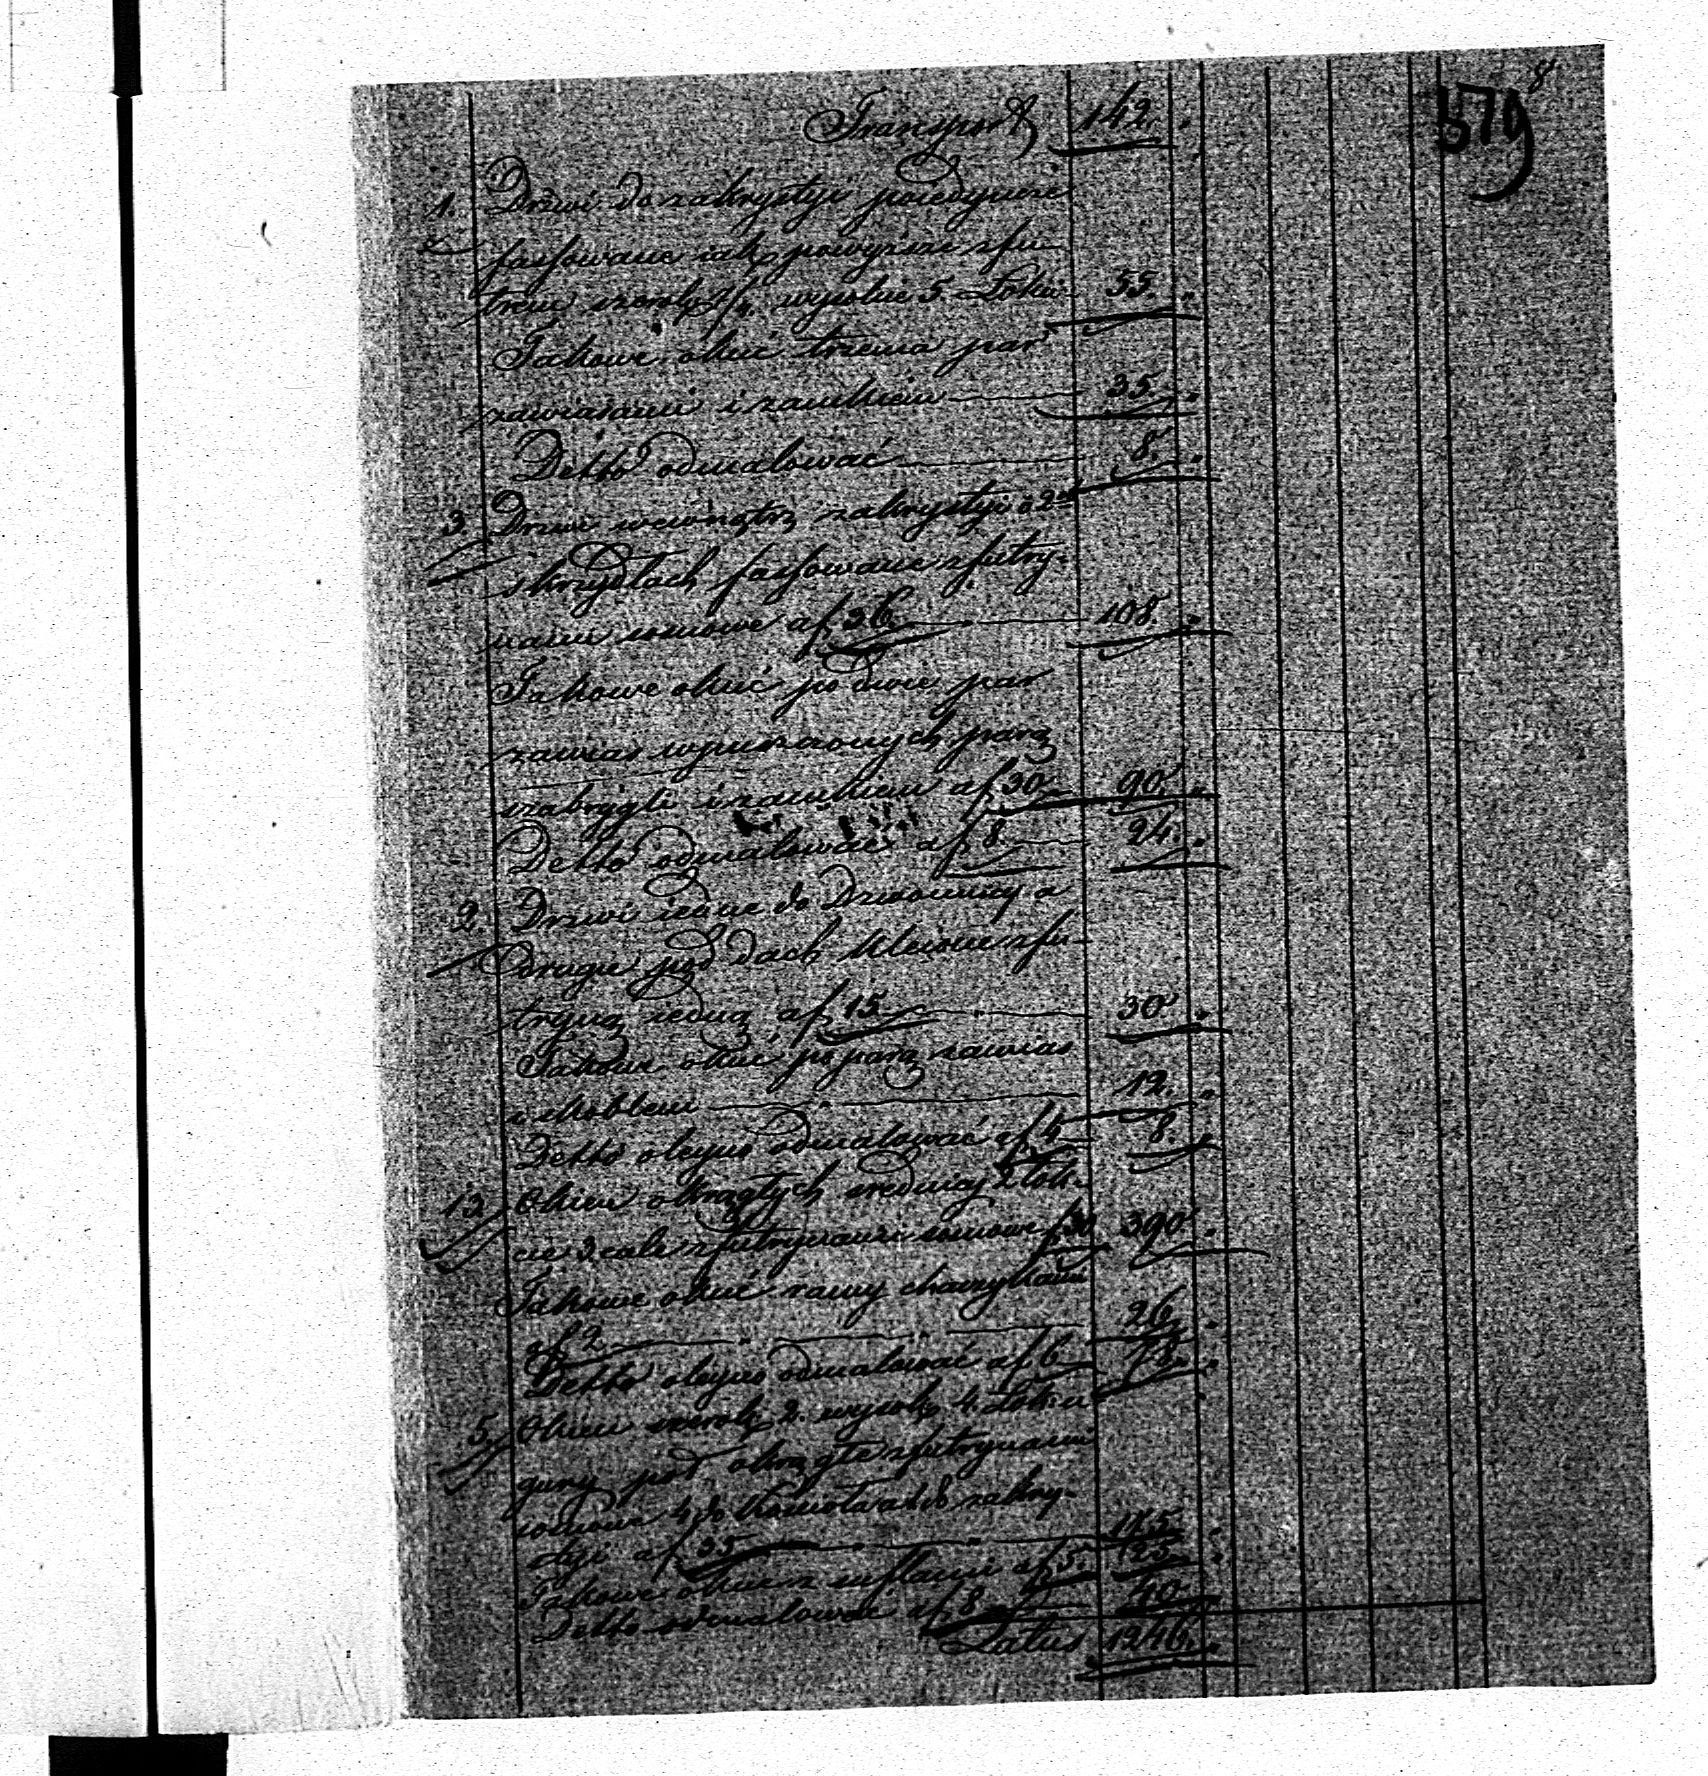 8
579
Transport 142 "
1. Drzwi do zakrystyi poiedyncze
fassowane iak powyższe z fu-
tren szerokie 2/4 wysokie 5. Łokci 55. "
Takowe okuć trzema par
zawiasami i zamkiem 35. "
Detto odmalować 8. "
3 Drzwi wewnątrz zakrystyi o 2ch
skrzydłach fassowane z futry-
nami sosnowe af 36 108. "
Takowe okuć po dwie par
zawias wpuszczonych, parą
szabrygli i zamkiem af 30 90. "
Detto odmalować af 8. 24. "
2. Drzwi iedne do Dzwonnicy a
drugie pod dach klejone z fu-
tryną iedną af 15 30 "
Takowe okuć po parą zawias
i skoblem 12. "
Detto oleyno odmalować af 4 8. "
13 Okien okrągłych średnicy 2 łok-
cie 3 cale z futrynami sosnowe f 30 390 "
Takowe okuć ramy
af 2 26 "
Detto oleyno odmalować af 6 78. "
5 Okien szerok. 2. wysok. 4. Łok: u
gury pod okrągłe z futrynami
sosnowe 4 do Kościoła a 1 do zakry-
styi af 35 175 "
Takowe okuć af 5. 25. "
Detto odmalować af 8 40 "
Latus 1246. "